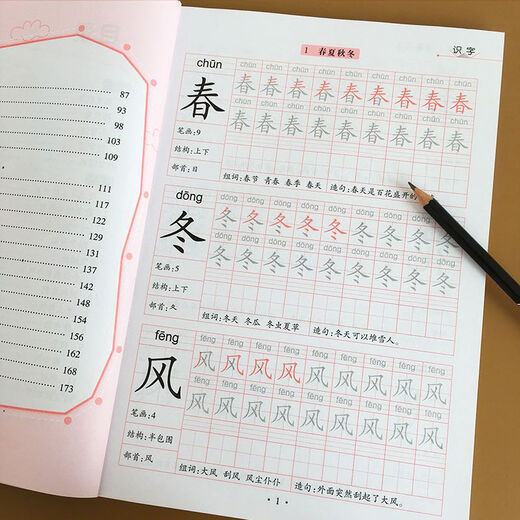 87
93
98
103
109
111
117
122
129
131
137
142
148
154
156
162
168
173
识字
1 春夏秋冬
chūn
chūn chūn chūn chūn chūn chūn chūn chūn chūn
春 春 春 春 春 春 春 春 春 春
chūn chūn chūn chūn chūn chūn chūn chūn chūn
春 春 春 春 春 春 春 春 春
笔画:9
结构:上下
部首:日
组词:春节 青春 春季 春天 造句:春天是百花盛开的
dōng
dōng dōng dōng dōng dōng dōng dōng dōng dōng
冬 冬 冬 冬 冬 冬 冬 冬 冬 冬
dōng dōng dōng dōng dōng dōng dōng dōng dōng
冬 冬 冬 冬 冬 冬 冬 冬 冬
笔画:5
结构:上下
部首:夂
组词:冬天 冬瓜 冬虫夏草 造句:冬天可以堆雪人。
fēng
fēng fēng fēng fēng fēng fēng fēng fēng fēng
风 风 风 风 风 风 风 风 风 风
fēng fēng fēng fēng fēng fēng fēng fēng fēng
风 风 风 风 风 风 风 风 风
笔画:4
结构:半包围
部首:风
组词:大风 刮风 风尘仆仆 造句:外面突然刮起了大风。
1